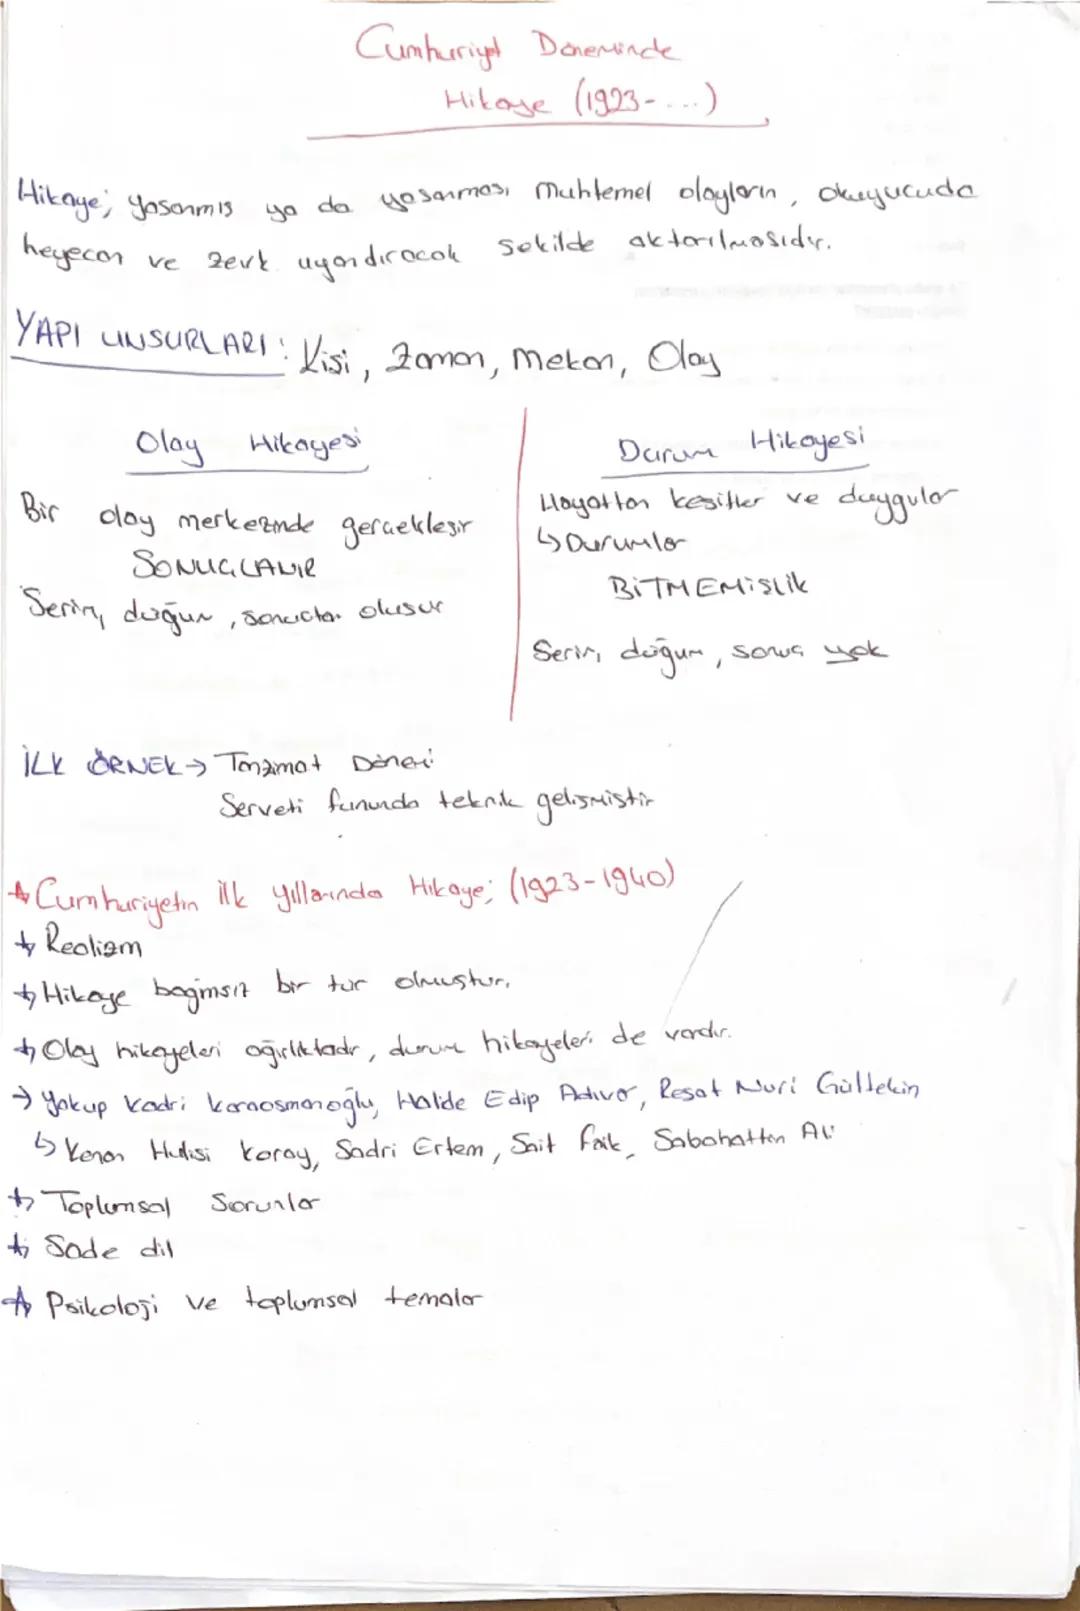 Cumhuriyet Döneminde
Hikaye (1923-....)
Hikaye; yaşanmış ya da yaşanması muhtemel olayların, okuyucuda
heyecan ve zevk uyandıracak şekilde aktarılmasıdır.
YAPI UNSURLARI: Kişi, Zaman, Mekan, Olay
Olay Hikayesi
Bir olay merkezinde gerçekleşir
SONUÇLANIR
Serim, düğüm, sonuçtan oluşur
Durum Hikayesi
Hayattan kesitler ve duygular
↳ Durumlar
BİTMEMİŞLİK
Serim, düğüm, sonuç yok
İLK ÖRNEK → Tanzimat Dönemi
Serveti fununda teknik gelişmiştir
Cumhuriyetin ilk yıllarında Hikaye; (1923-1940)
Realizm
Hikaye bağımsız bir tür olmuştur.
Olay hikayeleri ağırlıktadır, durum hikayeleri de vardır.
→ Yakup Kadri Karaosmanoğlu, Halide Edip Adıvar, Reşat Nuri Gültekin
↳ Kenan Hulisi Koray, Sadri Ertem, Sait Faik, Sabahattin Ali
Toplumsal Sorunlar
Sade dil
Psikoloji ve toplumsal temalar